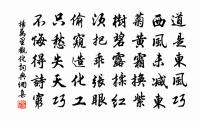 道是東風巧
西風未減東
菊黃霜換紫
樹碧露揉紅
須把乖張眼
偷窺造化工
只愁失天巧
不悔得詩窮
楊萬里觀化詞典網集